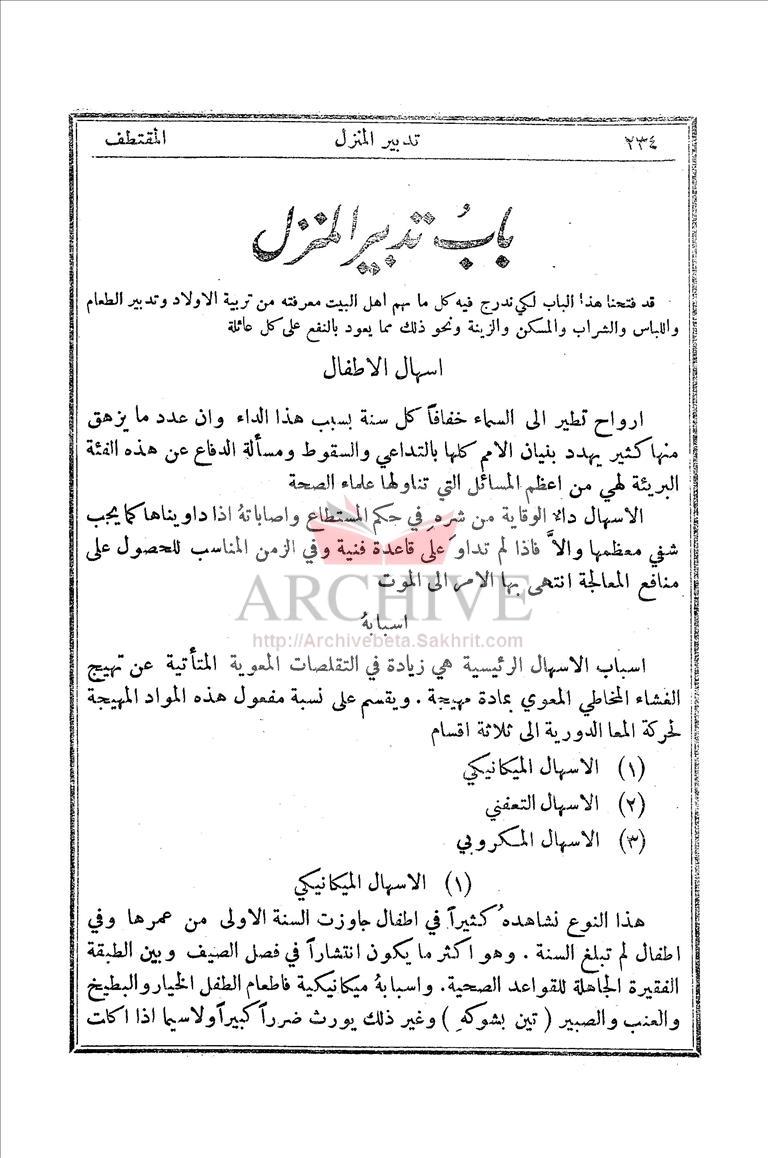 ٢٣٤ تدبير المنزل المقتطف
بابُ تدبير المنزل
قد فتحنا هذا الباب لكي ندرج فيه كل ما يهم اهل البيت معرفته من تربية الاولاد وتدبير الطعام
واللباس والشراب والمسكن والزينة ونحو ذلك مما يعود بالنفع على كل عائلة
اسهال الاطفال
ارواح تطير الى السماء خفافاً كل سنة بسبب هذا الداء وان عدد ما يزهق
منها كثير يهدد بنيان الامم كلها بالتداعي والسقوط ومسألة الدفاع عن هذه الفئة
البريئة لهي من اعظم المسائل التي تناولها علماء الصحة
الاسهال داء الوقاية من شره في حكم المستطاع واصاباتهُ اذا داويناها كما يجب
شفي معظمها والاَّ فاذا لم تداوَ على قاعدة فنية وفي الزمن المناسب للحصول على
منافع المعالجة انتهى بها الامر الى الموت
ARCHIVE
اسبابهُ
http://Archivebeta.Sakhrit.com
اسباب الاسهال الرئيسية هي زيادة في التقلصات المعوية المتأتية عن تهيج
الغشاء المخاطي المعوي بمادة مهيجة . ويقسم على نسبة مفعول هذه المواد المهيجة
لحركة المعا الدورية الى ثلاثة اقسام
(١) الاسهال الميكانيكي
(٢) الاسهال التعفني
(٣) الاسهال المكروبي
(١) الاسهال الميكانيكي
هذا النوع نشاهدهُ كثيراً في اطفال جاوزت السنة الاولى من عمرها وفي
اطفال لم تبلغ السنة . وهو اكثر ما يكون انتشاراً في فصل الصيف وبين الطبقة
الفقيرة الجاهلة للقواعد الصحية. واسبابهُ ميكانيكية فاطعام الطفل الخيار والبطيخ
والعنب والصبير ( تين بشوكهِ ) وغير ذلك يورث ضرراً كبيراً ولاسيما اذا اكلت